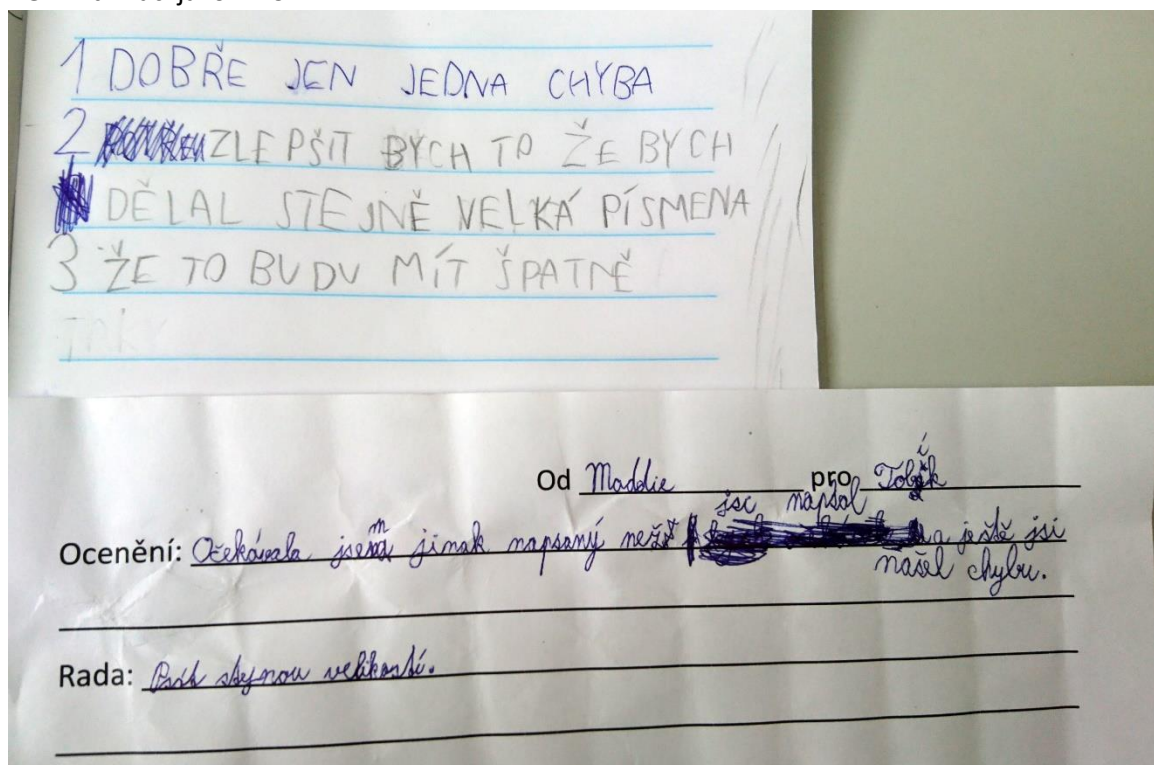 1 DOBŘE JEN JEDNA CHYBA
2 ZLEPŠIT BYCH TO ŽE BYCH
DĚLAL STEJNĚ VELKÁ PÍSMENA
3 ŽE TO BUDU MÍT ŠPATNĚ
Od Maddie pro Tobík
jsi napsal
Ocenění: Očekávala jsem jinak napsaný než a ještě jsi
našel chybu.
Rada: Psát stejnou velikostí.